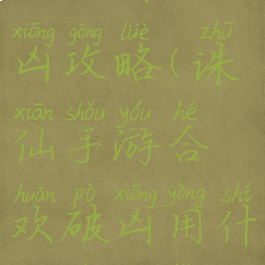 xiōng gōng lüè zhū
凶攻略(诛
xiān shǒu yóu hé
仙手游合
huān pò xiōng yòng shí
欢破凶用什